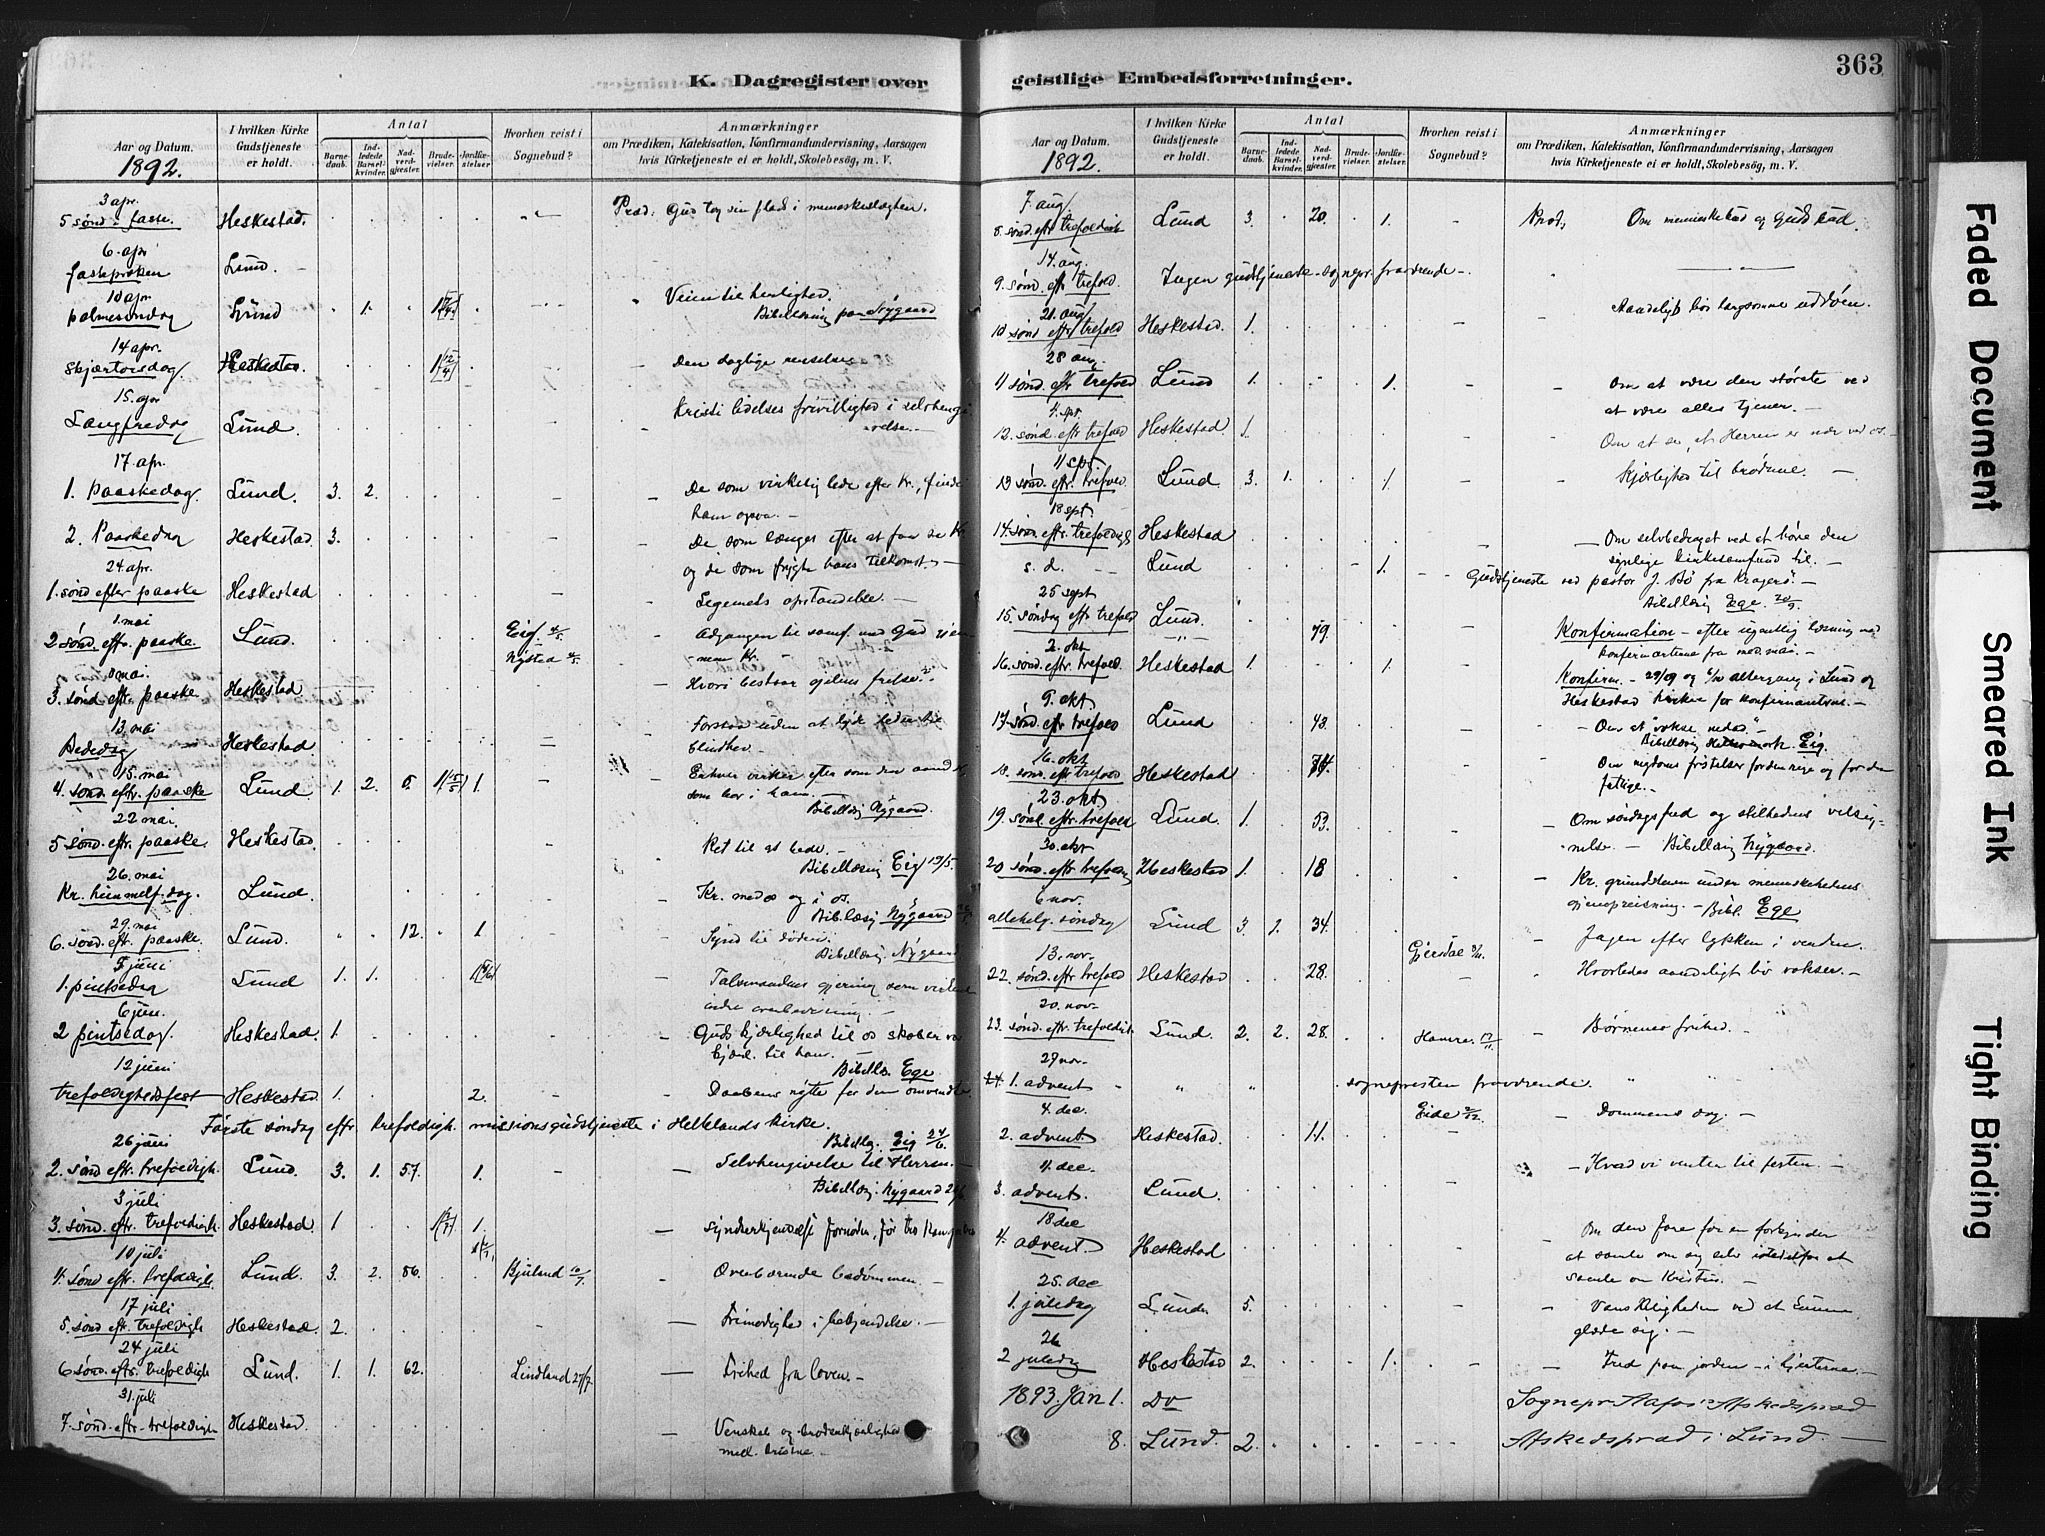 K. Dagregister over
Aar og Datum.
1892.
I hvilken Kirke Gudstjeneste er holdt.
Antal
Barnedaab.
Indledede Barselkvinder.
Nadverdgjester.
Brudevielser.
Jordfæstelser.
Hvorhen reist i Sognebud?
Anmærkninger
om Prædiken, Katekisation, Konfirmandundervisning, Aarsagen
hvis Kirketjeneste ei er holdt, Skolebesög, m. V.
3 apr.
5 sønd i faste. Heskestad. Præd. Gud tog sin plads i menneskeslægten.
6. apr
fasteprøken Lund.
10 apr
palmesøndag Lund 1. Veien til herlighed.
Bibellæsning paa Nygaard
14 apr.
Skjærtorsdag Heskestad. Den daglige renselse
15. apr
Langfredag Lund. Kristi lidelses frivillighed i selvhengi
velse.
17. apr.
1. paaskedag. Lund. 3. 2. De som virkelig lede efter Kr., finde
ham ogsaa. -
2. Paaskedag Heskestad. 3. De som længes efter at faa se Kr
og de som frygte hans tilkomst -
24. apr.
1. sønd efter paaske Heskestad Legemets opstandelse. -
1. mai
2 sønd. eftr. paaske. Lund. Eig 4/5 Adgangen til samf. med Gud gjen
Nystad 4/5. nem Kr.
8 mai.
3. sønd eftr. paaske Heskestad Hvori bestaar sjelens frelse?
13. mai
Bededag Heskestad Forstaa uden at lyde leder til
blindhed. -
15. mai
4. sønd. eftr. paaske Lund. 1. 2. 6. 1(15/5) 1. Enhver virker efter som den aand er
som bor i ham. -
Bibellæsn Nygaard.
22 mai.
5 sønd. eftr. paaske. Heskestad. Ret til at bede. -
Bibellæsnig Eig 19/5.
26. mai
Kr. himmelf. dag. Lund. Kr. med os og i os.
Bibellæsng Nygaard
29. mai
6. sønd. eftr. paaske. Lund. 12. 1. Synd til døden.
Bibellæsng. Nygaard
5 juni
1. pintsedag Lund 1. 1. Talsmandens gjerning som virkende
6 juni.
2 pintsedag. Heskestad. 1. Guds kjærlighed til os skaber vor
kjærl. til ham. -
Bibellæs. Ege
12 juni
trefoldighedsfest Heskestad. 1. 2. Daabens nytte for den omvendte
Første søndag eftr trefoldigh. missionsgudstjeneste i Hellelands kirke.
Bibellæs. Eig 24/6.
26 juni
2. sønd eftr. trefoldigh. Lund. 3. 1. 57. 1. Selvhengivelse til Herren. -
Bibellæsng. Nygaard
3 juli
3. sønd. eftr. trefoldigh. Heskestad. 1 1.
10 juli
4. sønd eftr. trefoldigh. Lund. 3. 2. 86. Bjuland 10/7. Overbærende bedømmen. -
17 juli
5. sønd eftr. trefoldigh Heskestad. 2. Frimodighed i bekjendelse. -
24 juli
6 sønd. eftr. trefoldigh Lund. 1. 1. 62. Lindland 27/7. Frihed fra loven. -
31. juli
7. sønd. eftr. trefoldigh Heskestad. Venskab og broderkjærlighed
med. kristne -
geistlige Embedsforretninger.
363
Aar og Datum.
1892.
I hvilken Kirke Gudstjeneste er holdt.
Antal
Barnedaab.
Indledede Barselkvinder.
Nadverdgjester.
Brudevielser.
Jordfæstelser.
Hvorhen reist i Sognebud?
Anmærkninger
om Prædiken, Katekisation, Konfirmandundervisning, Aarsagen
hvis Kirketjeneste ei er holdt, Skolebesög, m. V.
7. aug
8. sønd. eftr trefoldigh Lund 3. 20. 1. Om menneskeraad og Guds raad.
14. aug.
9. sønd. eftr trefold. Ingen gudstjeneste - sognepr. fraværende -
21. aug
10 sønd eftr trefold Heskestad. 1. Aandeligt livs langsomme uddøen.
28 aug
11 sønd. eftr trefold Lund 1. 1. Om at være den største ved
at være alles tjener. -
4. spt
12. sønd. eftr trefold Heskestad. 1. Om at se, at Herren er nær ved os. -
11 spt.
13 sønd. eftr. trefold. Lund 3. 1. 1. Kjærlighed til brødrene. -
18 spt.
14. sønd eftr. trefoldigh Heskestad Om selvbedraget ved at høre den
synlige kirkesamfund til. -
s. d. Lund 1. Gudstjeneste ved pastor J. Bø fra Kragerø. -
Bibellæsng Ege. 20/9.
25 sept
15. søndag eftr trefold Lund. 49. Konfirmation - efter ugentlig læsning med
konfirmanterne fra med. mai. -
2. okt
16. sønd. eftr. trefold. Heskestad 1. 1. Konfirm. - 29/09 og altergang i Lund og
Heskestad kirker for konfirmanterne. -
9. okt
17 sønd. eftr trefold Lund 43. - Om at "vokse nedad". -
Bibellæsng Eig.
16. okt
18. sønd eftr trefold Heskestad Om nydens fristelser for den rige og for den
fattige. -
23. okt
19. sønd. eftr. trefold Lund. 1. 53. Om søndagsfred og stilhedens velsig-
nelse. - Bibellæsng Nygaard.
30. okt
20 sønd. eftr trefoldig Heskestad 1. 18 Kr. grundstenen under menneskehedens
gjenopreisning. - Bibl. Ege
6 nov.
allehelg. søndag Lund 3. 1. 34. Gjersdal Jagen efter lykken i verden.
13. nov.
22. sønd. eftr trefold Heskestad 28. Hvorledes aandeligt liv vokser. -
20. nov.
23. sønd. eftr. trefoldigh. Lund. 2. 2. 28. Hamre. Børnenes frihed. -
27 nov.
1. advent sognepresten fraværende.
4. dec. Eide 2/12.
2. advent Heskestad. 11. Dommens dag. -
11. dec.
3. advent. Lund. - Hvad vi venter til festen. -
18 dec
4. advent. Heskestad Om den fare for en forkynder
at samle om sig selv istedetfor at
samle om Kristus. -
25. dec
1. juledag Lund. 5. Vanskeligheden ved at kunne
glæde sig. -
26
2 juledg Heskestad 2. 1. Fred paa jorden - i hjerterne. -
1893. Jan 1. Do Sognepr Aafos's Afskedspræd
8. Lund. 2. Afskedspræd i Lund. -
Faded Document
Smeared Ink
Tight Binding